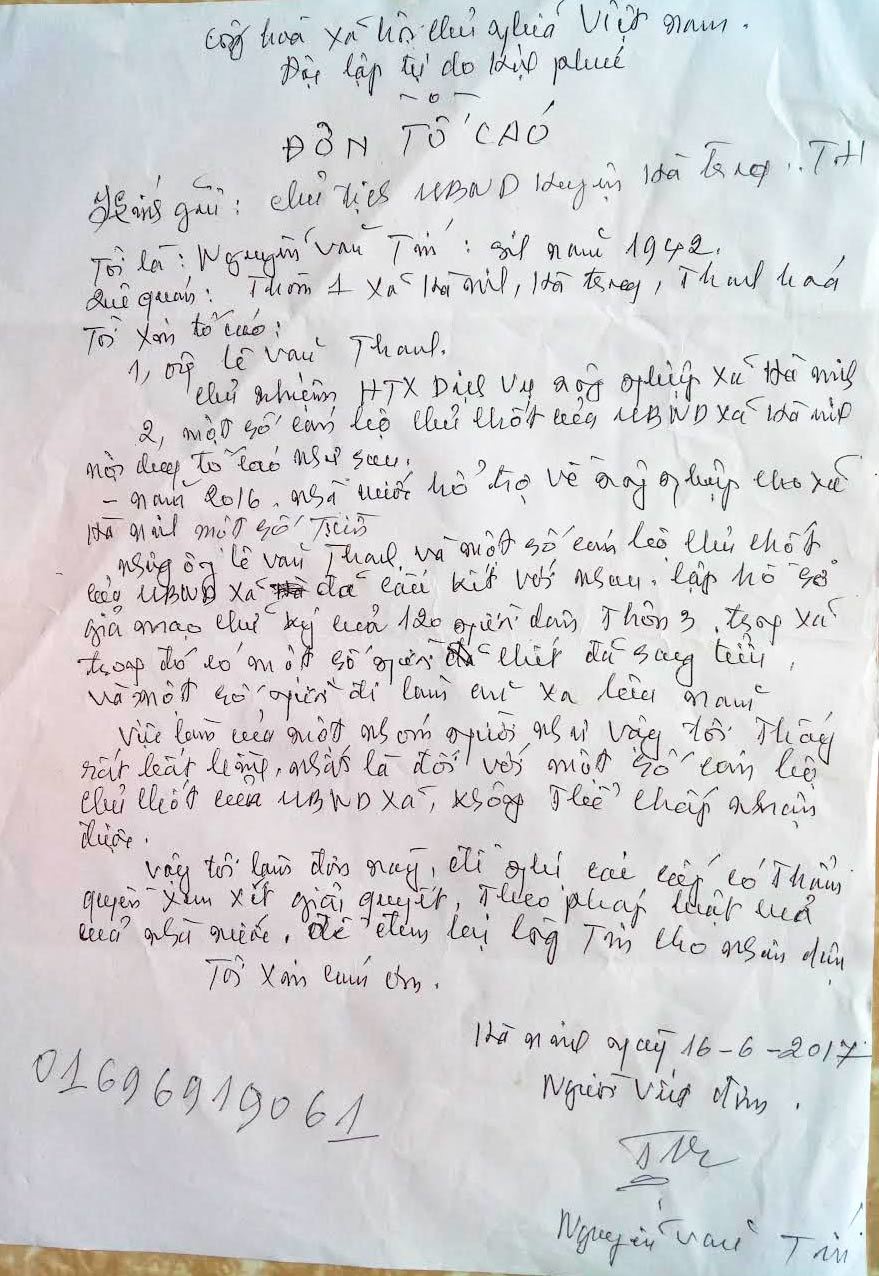 Cộng hoà xã hội chủ nghĩa Việt nam.
Độc lập tự do hạnh phúc
ĐƠN TỐ CÁO
Kính gửi: chủ tịch UBND huyện Hà trung .. TH
Tôi là: Nguyễn văn Tín: sinh năm 1942.
Quê quán: Thôn 1 xã Hà ninh, Hà trung, Thanh hoá
Tôi xin tố cáo:
1, ông lê văn Thanh.
chủ nhiệm HTX Dịch vụ nông nghiệp xã Hà ninh
2, một số cán bộ chủ chốt của UBND xã Hà ninh
nội dung tố cáo như sau.
- năm 2016. nhà nước hổ trợ về nông nghiệp cho xã
Hà ninh một số tiền
nhưng ông lê văn Thanh. và một số cán bộ chủ chốt
của UBND xã đã câu kết với nhau. lập hồ sơ
giả mạo chữ ký của 120 người dân Thôn 3. trong xã
trong đó có một số người chết đã sang tiểu,
và một số người đi làm ăn xa lâu năm
Việc làm của một nhóm người như vậy tôi thấy
rất bất bình, nhất là đối với một số cán bộ
chủ chốt của UBND xã, không thể chấp nhận
được.
Vậy tôi làm đơn này, đề nghị các cấp có thẩm
quyền xem xét giải quyết, theo pháp luật của
của nhà nước. để đem lại lòng tin cho nhân dân
Tôi xin cám ơn.
Hà ninh ngày 16-6-2017
Người viết đơn.
01696919061
Nguyễn văn Tín